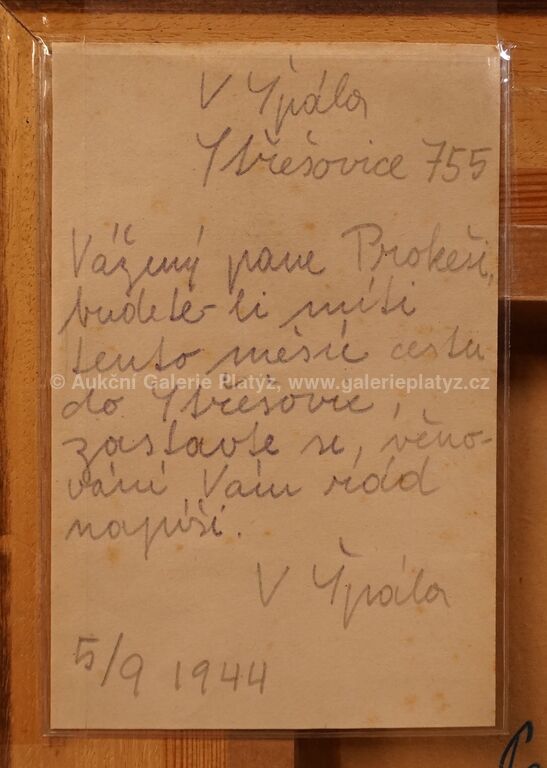 V Špála
Střešovice 755
Vážený pane Prokeši,
budete-li míti
tento měsíc cestu
© Aukční Galerie Platýz, www.galerieplatyz.cz
do Střešovic,
zastavte se, věno-
vání Vám rád
napíši.
V Špála
5/9 1944